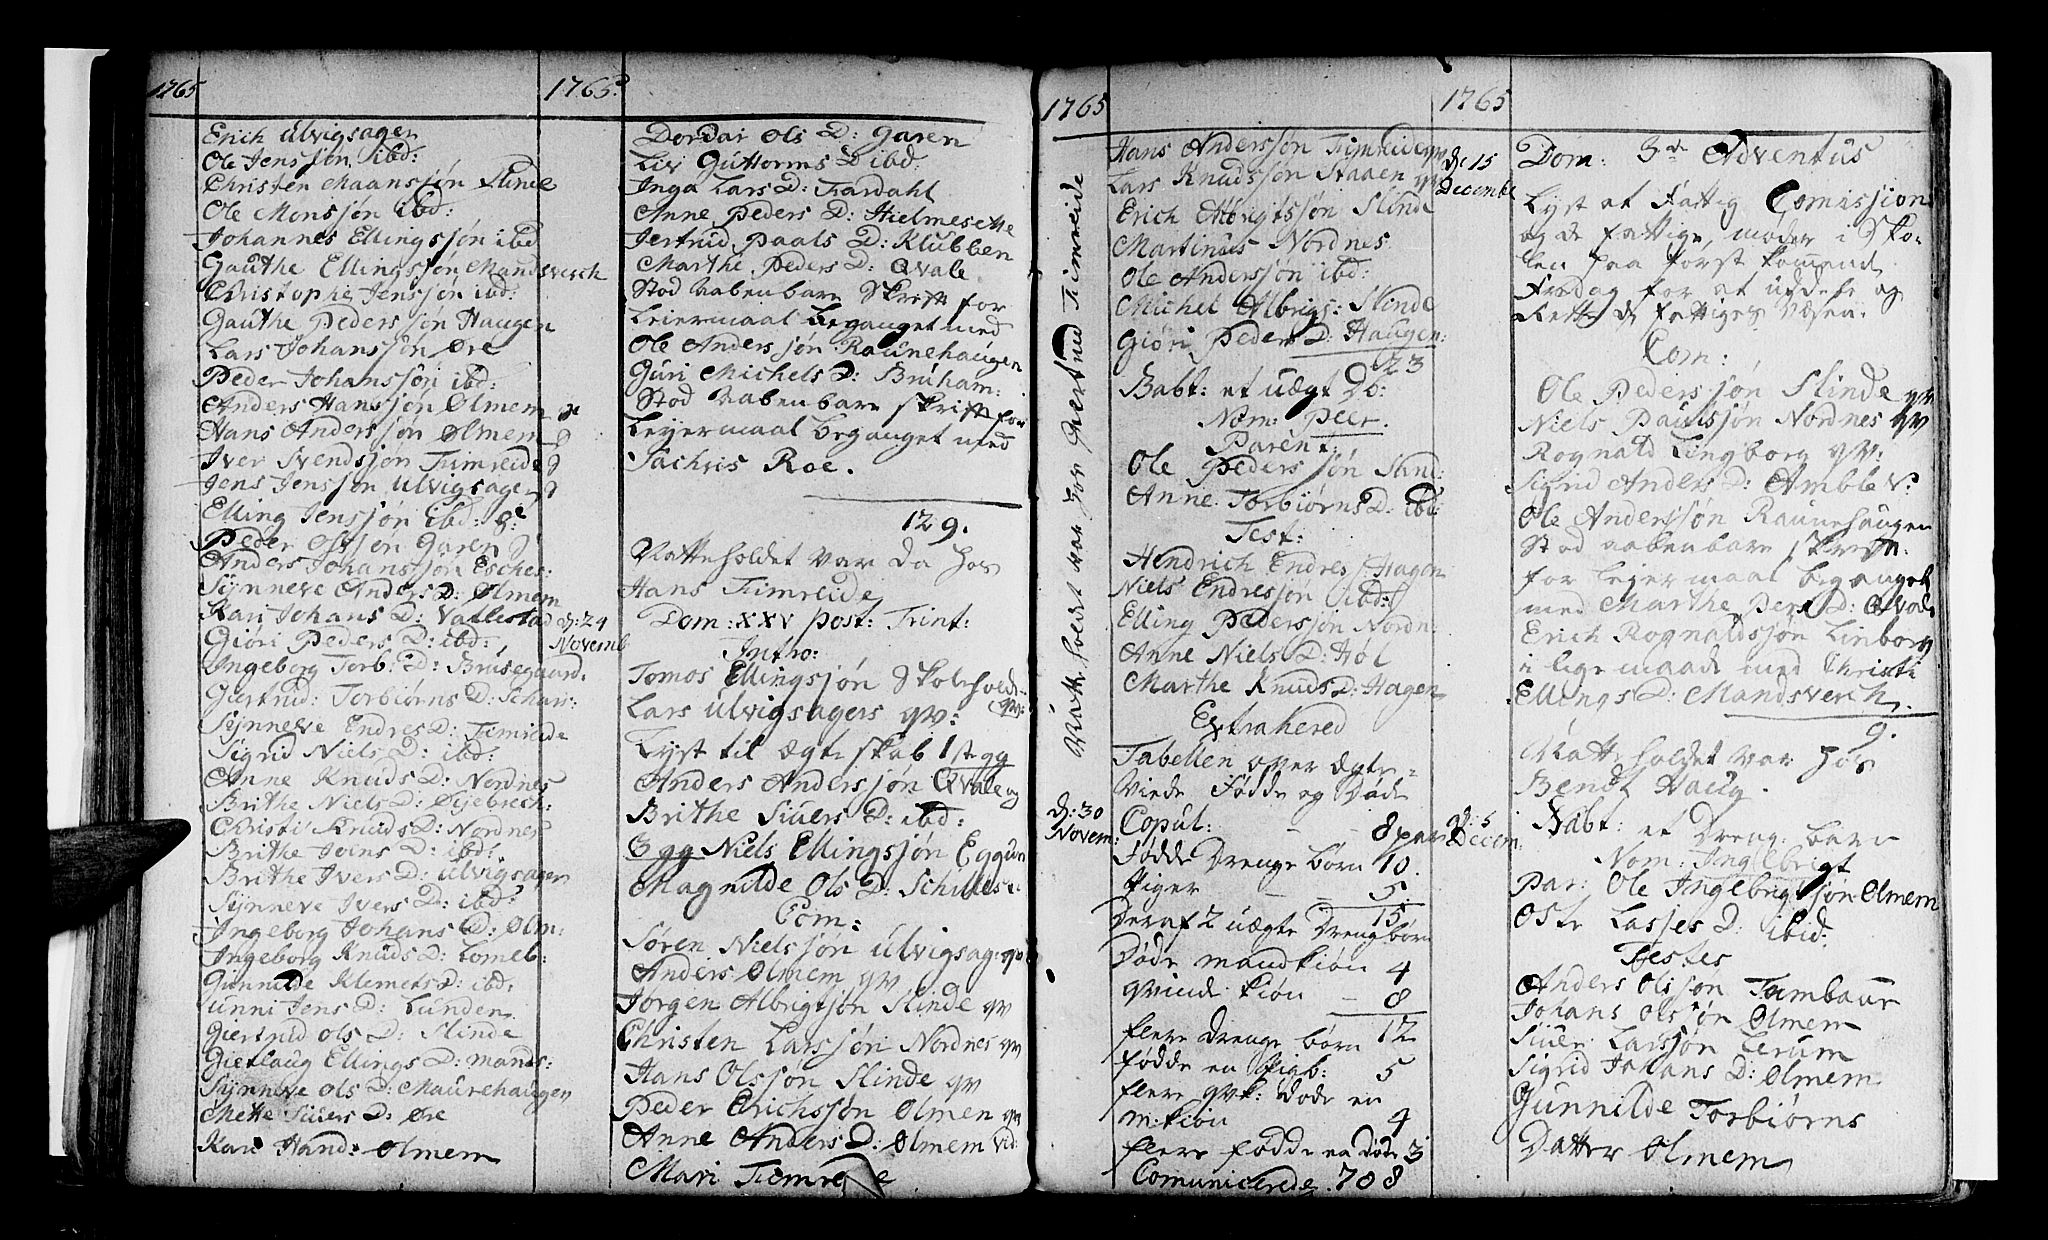 1765
Erich Ulvigsager
Ole Jenssøn ibd:
Christen Maanssøn Slinde
Ole Monssøn ibd:
Johannes Ellingssøn ibd
Gauthe Ellingssøn Mandsverch
Christopher Jenssøn ibd:
Gauthe Pederssøn Haugen
Lars Johanssøn Øre
Peder Johanssøn ibd:
Anders Hanssøn Ølmem
Hans Anderssøn Ølmem
Iver Svendssøn Timreide
Jens Jenssøn Ulvigsager
Elling Jenssøn ibd:
Peder Olssøn Garen
Anders Johanssøn Esches:
Synneve Anders D: Ølmem
Kari Johans D: Vatlestad
Giøri Peders D: ibd:
Ingeborg Torb: D: Brusegaard.
Giertrud: Torbiørns D: Schars:
Synneve Endres D: Timreide
Sigrid Niels D: ibd:
Anne Knuds D: Nordnes
Brithe Niels D:
Christi Knuds D: Nordnes
Brithe Joens D: ibd:
Brithe Ivers D: Ulvigsager
Synneve Ivers D: ibd:
Ingeborg Johans D: Ølm:
Ingeborg Knuds D: Lomeb:
Gunnilde Klemets D: ibd.
Unni Jens D: Lunden
Giertrud Ols D: Slinde
Gietlaug Ellings D: Mands:
Synneve Ols D: Maurehaugen
Mette Siurs D: Øre
Kari Hand: Ølmem
1765
Dordai Ols D: Garen
Liv Guttorms D ibd:
Inga Lars D: Fardahl
Anne Peders D: Hielmesethe
Jertrud Paals D: Klubben
Marthe Peders D: Qvale
Stod aabenbare Skrifte for
Leiermaal beganget med
Ole Anderssøn Raunehaugen
Guri Michels D: Bruham:
Stod aabenbare skrifte for
Leyermaal beganget med
Sachris Roe.
129.
Natteholdet var da hos
Hans Timreide
d: 24
Novemb
Dom: XXV post: Trint:
Intro:
Tomos Ellingssøn Skoleholde
qv:
Lars Ulvigsagers qv:
Lyst til ægteskab 1ste gg
Anders Anderssøn Qvale og
Brithe Siuers D: ibd:
3 gg Niels Ellingssøn Eggum
Magnilde Ols D:
Com:
Søren Nielssøn Ulvigsag: qv
Anders Ølmem qv
Jørgen Albrigtsøn Slinde qv
Christen Larssøn Nordnes qv
Hans Olssøn Slinde qv
Peder Erichssøn Ølmen qv
Anne Anders D: Ølmem vid:
Mari Timreide
1765
Natteholdet var hos Giert ned Timreide
Hans Anderssøn Timreide qv
Lars Knudssøn Staaen qv
Erich Albrigtssøn Slinde
Martinus Nordnes
Ole Anderssøn ibd:
Michel Albrigs: Slinde
Giøri Peders D: Haugen:
23
Babt: et uægt Do:
Nom: Peer.
Parent:
Ole Pederssøn Sand:
Anne Torbiørns D: ibd:
Test:
Hendrich Endres: Hagen
Niels Endressøn ibd:
Elling Pederssøn Nordn:
Anne Niels D: Høl
Marthe Knuds D: Hagen
Extrahered
Tabellen over ægte-
Viede Fødde og Døde
d: 30
Novem:
Copul: - - 8 par
Fødde Drenge børn 10.
Piger - - 5.
15
Deraf 2 uægte Drengbørn
Døde mandkiøn 4
qvinde kiøn - 8
12
flere Drenge børn
fødde en Pigb: 5
flere qvk: døde en
m: kiøn 4
flere fødde en døde 3
Comunicerede. 708
1765
d: 15
Decembr
Dom: 3de Adventus
Lyst at Fattig Comission
og de fattige, møder i Sko-
len paa først kommend
Fredag for at uddele og
Rette de fattiges Væsen.
Com:
Ole Pederssøn Slinde qv
Niels Paulssøn Nordnes qv
Rognald Lingborg qv:
Sigrid Anders D: Amble V:
Ole Anderssøn Raunehaugen
Stod aabenbare skrifte.
for Lejermaal beganget
med Marthe Pers D: Qvale
Erich Rognaldssøn Linborg
i lige maade med Christi
Ellings D: Mandsverch.
9.
Natteholdet var hos
Bendt Haug.
d: 5
Decem:
Babt: et Drenge barn
Nom: Ingebrigt
Par: Ole Ingebrigtssøn Ølmem
Oste Lasses D: ibid:
Testes
Anders Olssøn Tambaur
Johans Olssøn Ølmem
Siuer Larssøn Lerum
Sigrid Johans D: Ølmem
Gunnilde Torbiørns
Datter Ølmem